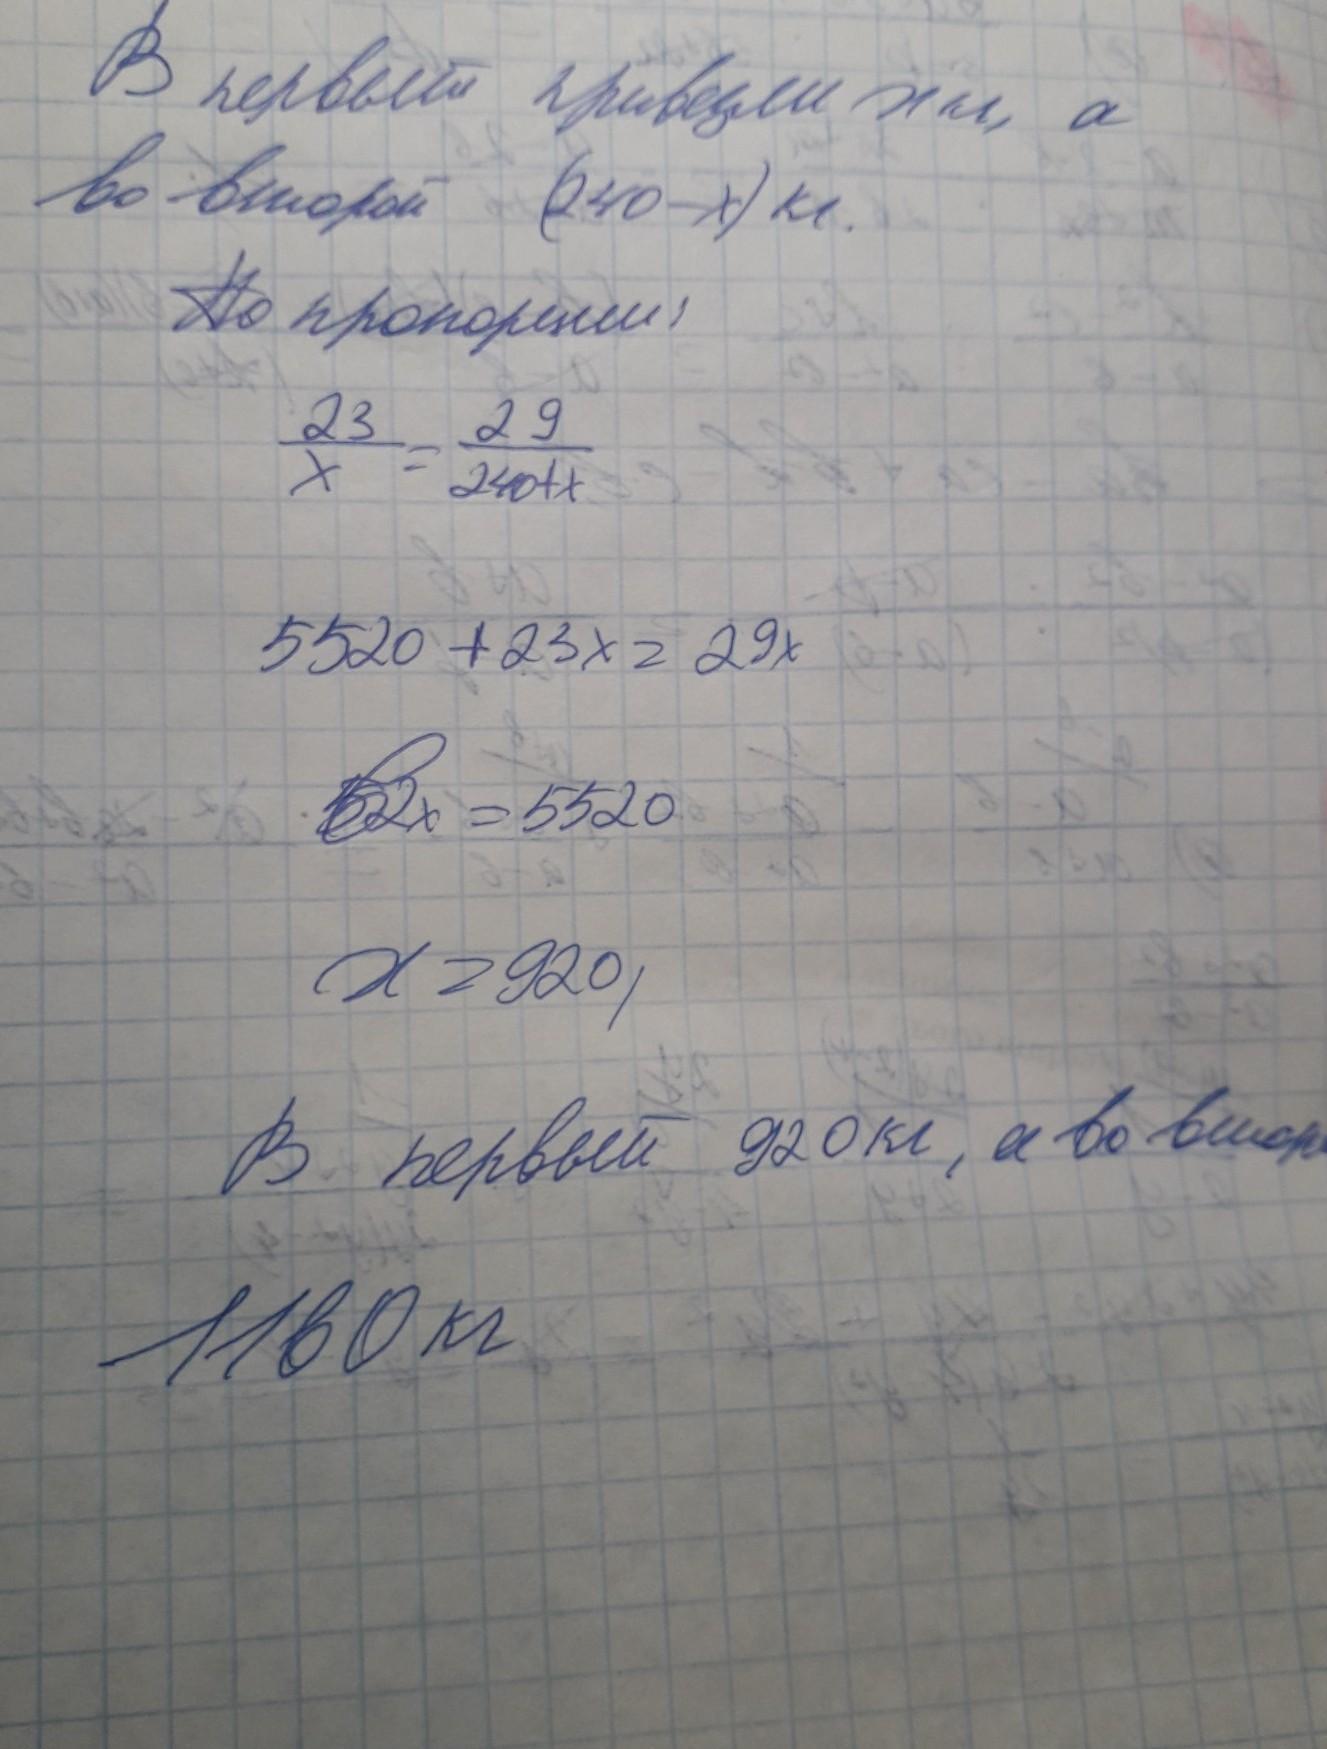 В первый привезли х кг, а
во второй (240-х) кг.
По пропорции:
23/x = 29/240+x
5520 + 23x = 29x
x = 5520
x = 920,
В первый 920 кг, а во втор
1160 кг